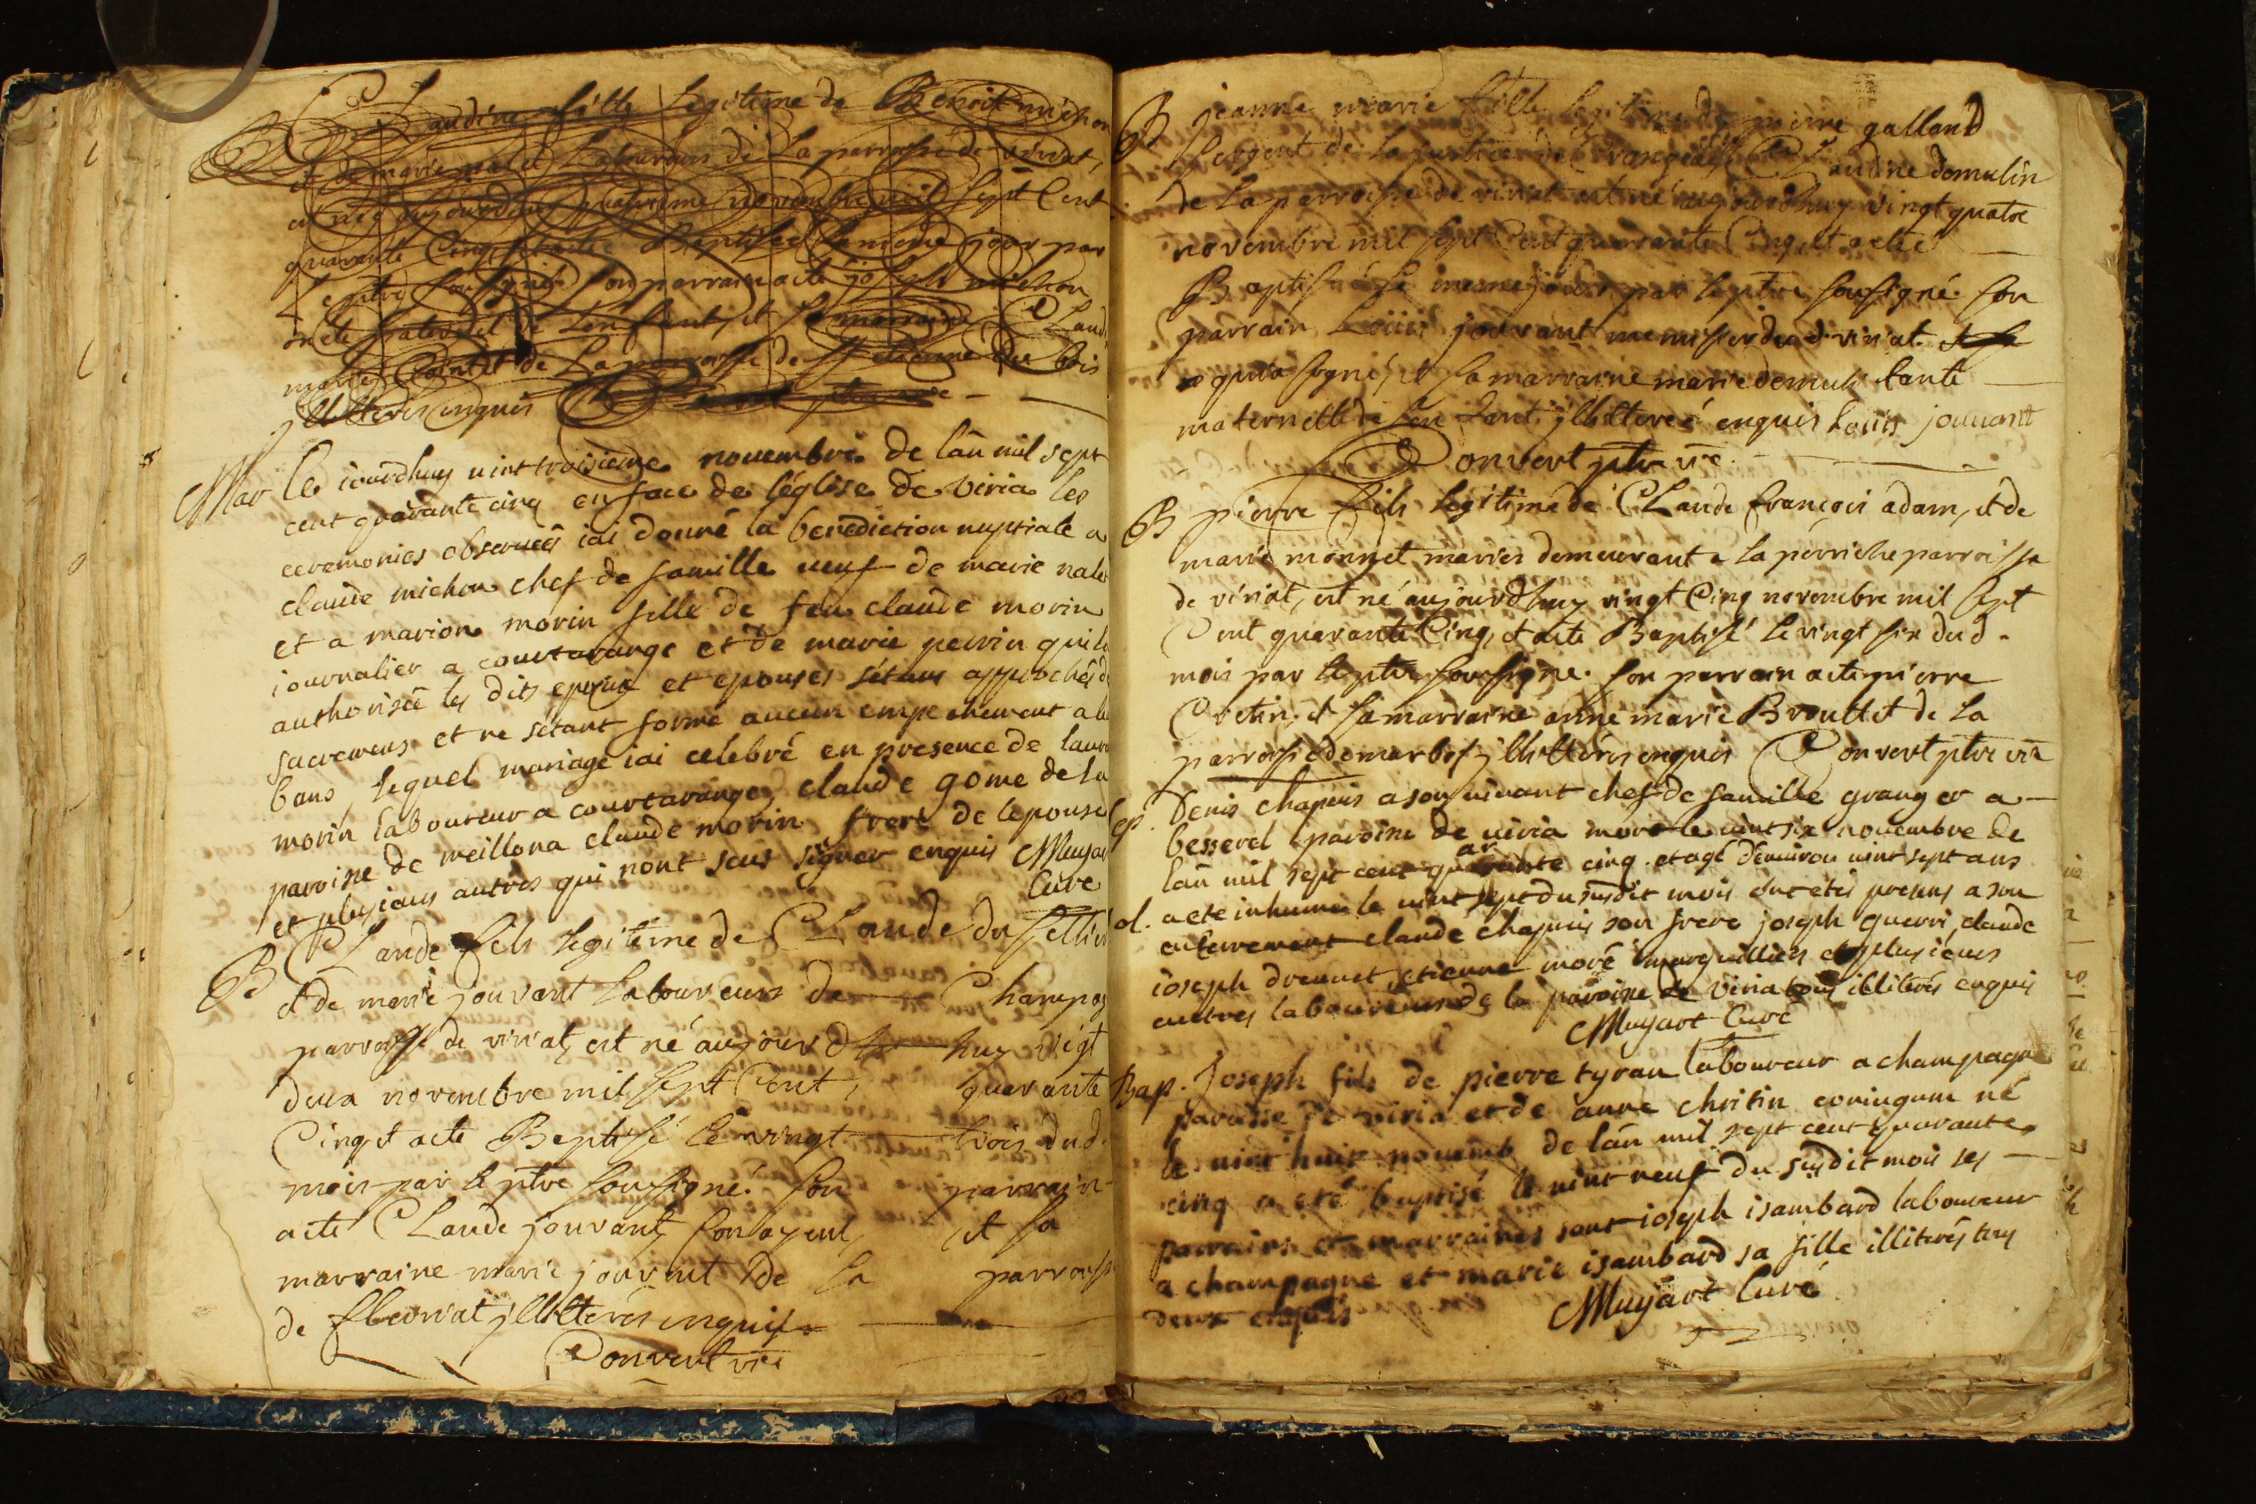 B Claudine fille legitime de Benoit michon
et de marie palet Laboureurs de La parroisse de viriat,
est née aujourdhuy quatrieme novembre mil sept Cent
quarante Cinq, et acte Baptisée le meme jour par
le ptre sousigné son parrain acte joseph michon
oncle paternel de Lenfant, et sa marraine Claud
marie Cointet de La parroisse de st etienne du bois
jllitteres enquis
Mar Ce iourdhuy vint troisieme nouembre de lan mil sept
cent quarante cinq en face de léglise de viria les
ceremonies obseruées iai donné la benediction nuptiale a
claude michon chef de famille ueuf de marie nalet
et a marion morin fille de feu claude morin
iournalier a courtarange et de marie perrin qui la
authorisée les dits epoux et epouses sétans approchés d
sacremens et ne sétant formé aucun empechement a la
bans lequel mariage iai celebré en presence de laure
morin laboureur a courtarange, claude gome de la
paroisse de meillona claude morin frere de lepouse
et plusieurs autres qui nont sceus signer enquis Muyar
Curé
B Claude fils legitime de Claude du sellier
et de marie jouvant Laboureurs de Champag
parroisse de viriat, est né aujourdhuy vigt
deux novembre mil sept Cent, quarante
Cinq et acte Baptisé le vingt trois dud.
mois par le ptre sousigné. son parrain
acte Claude jouvant, son ayeul, et sa
marraine marie jouvent de la parroiss
de fleiriat jllitterés enquis
Convert vre
B jeanne marie fille legitime de pierre galland
sergent de la justice de Claudine domulin
de La parroisse de viriat est né aujourdhuy vingt quatre
novembre mil sept Cent quarante Cinq, et acte
Baptisé le meme jour par le ptre sousigné son
parrain Loüis jouvant menusier dud. viriat et sa
qui a signé, et sa marraine marie demuli tante
maternelle de Lenfant jllitteree enquis Loüis jouuant
Convert ptre vre.
B pierre fils legitime de Claude françois adam, et de
marie monnet mariés demeurant a la perriche parroisse
de viriat, est né aujourdhuy vingt Cinq novembre mil sept
Cent quarante Cinq, et acte Baptisé le vingt six dud.
mois par le ptre sousigné. son parrain acte pierre
Cretin, et sa marraine anne marie Brouttet de La
parroisse de marbos jllitterés enquis Convert ptre vre
Denis chapuis a son uiuant chef de famille granger a
besserel paroisse de uiria mort le uint six nouembre de
lan mil sept cent quarante cinq et agé denuiron uint sept ans
a ete inhumé le uint sept du susdit mois ont etés presens a son
enterrement claude chapuis son frere joseph querri, claude
ioseph dreunet, etienne moré marguilliers et plusieurs
autres laboureurs de la paroisse de viria tous illiterés enquis
Muyart Curé
Bap. Joseph fils de pierre tyran laboureur a champagne
paroisse de viria et de anne chritin coniugum né
le uint huit nouemb de lan mil sept cent quarante
cinq a eté baptisé le uint neuf du susdit mois ses
parrains et marraines sont ioseph isambard laboureur
a champagne et marie isambard sa fille illiterés tous
deux enquis
Muyart Curé